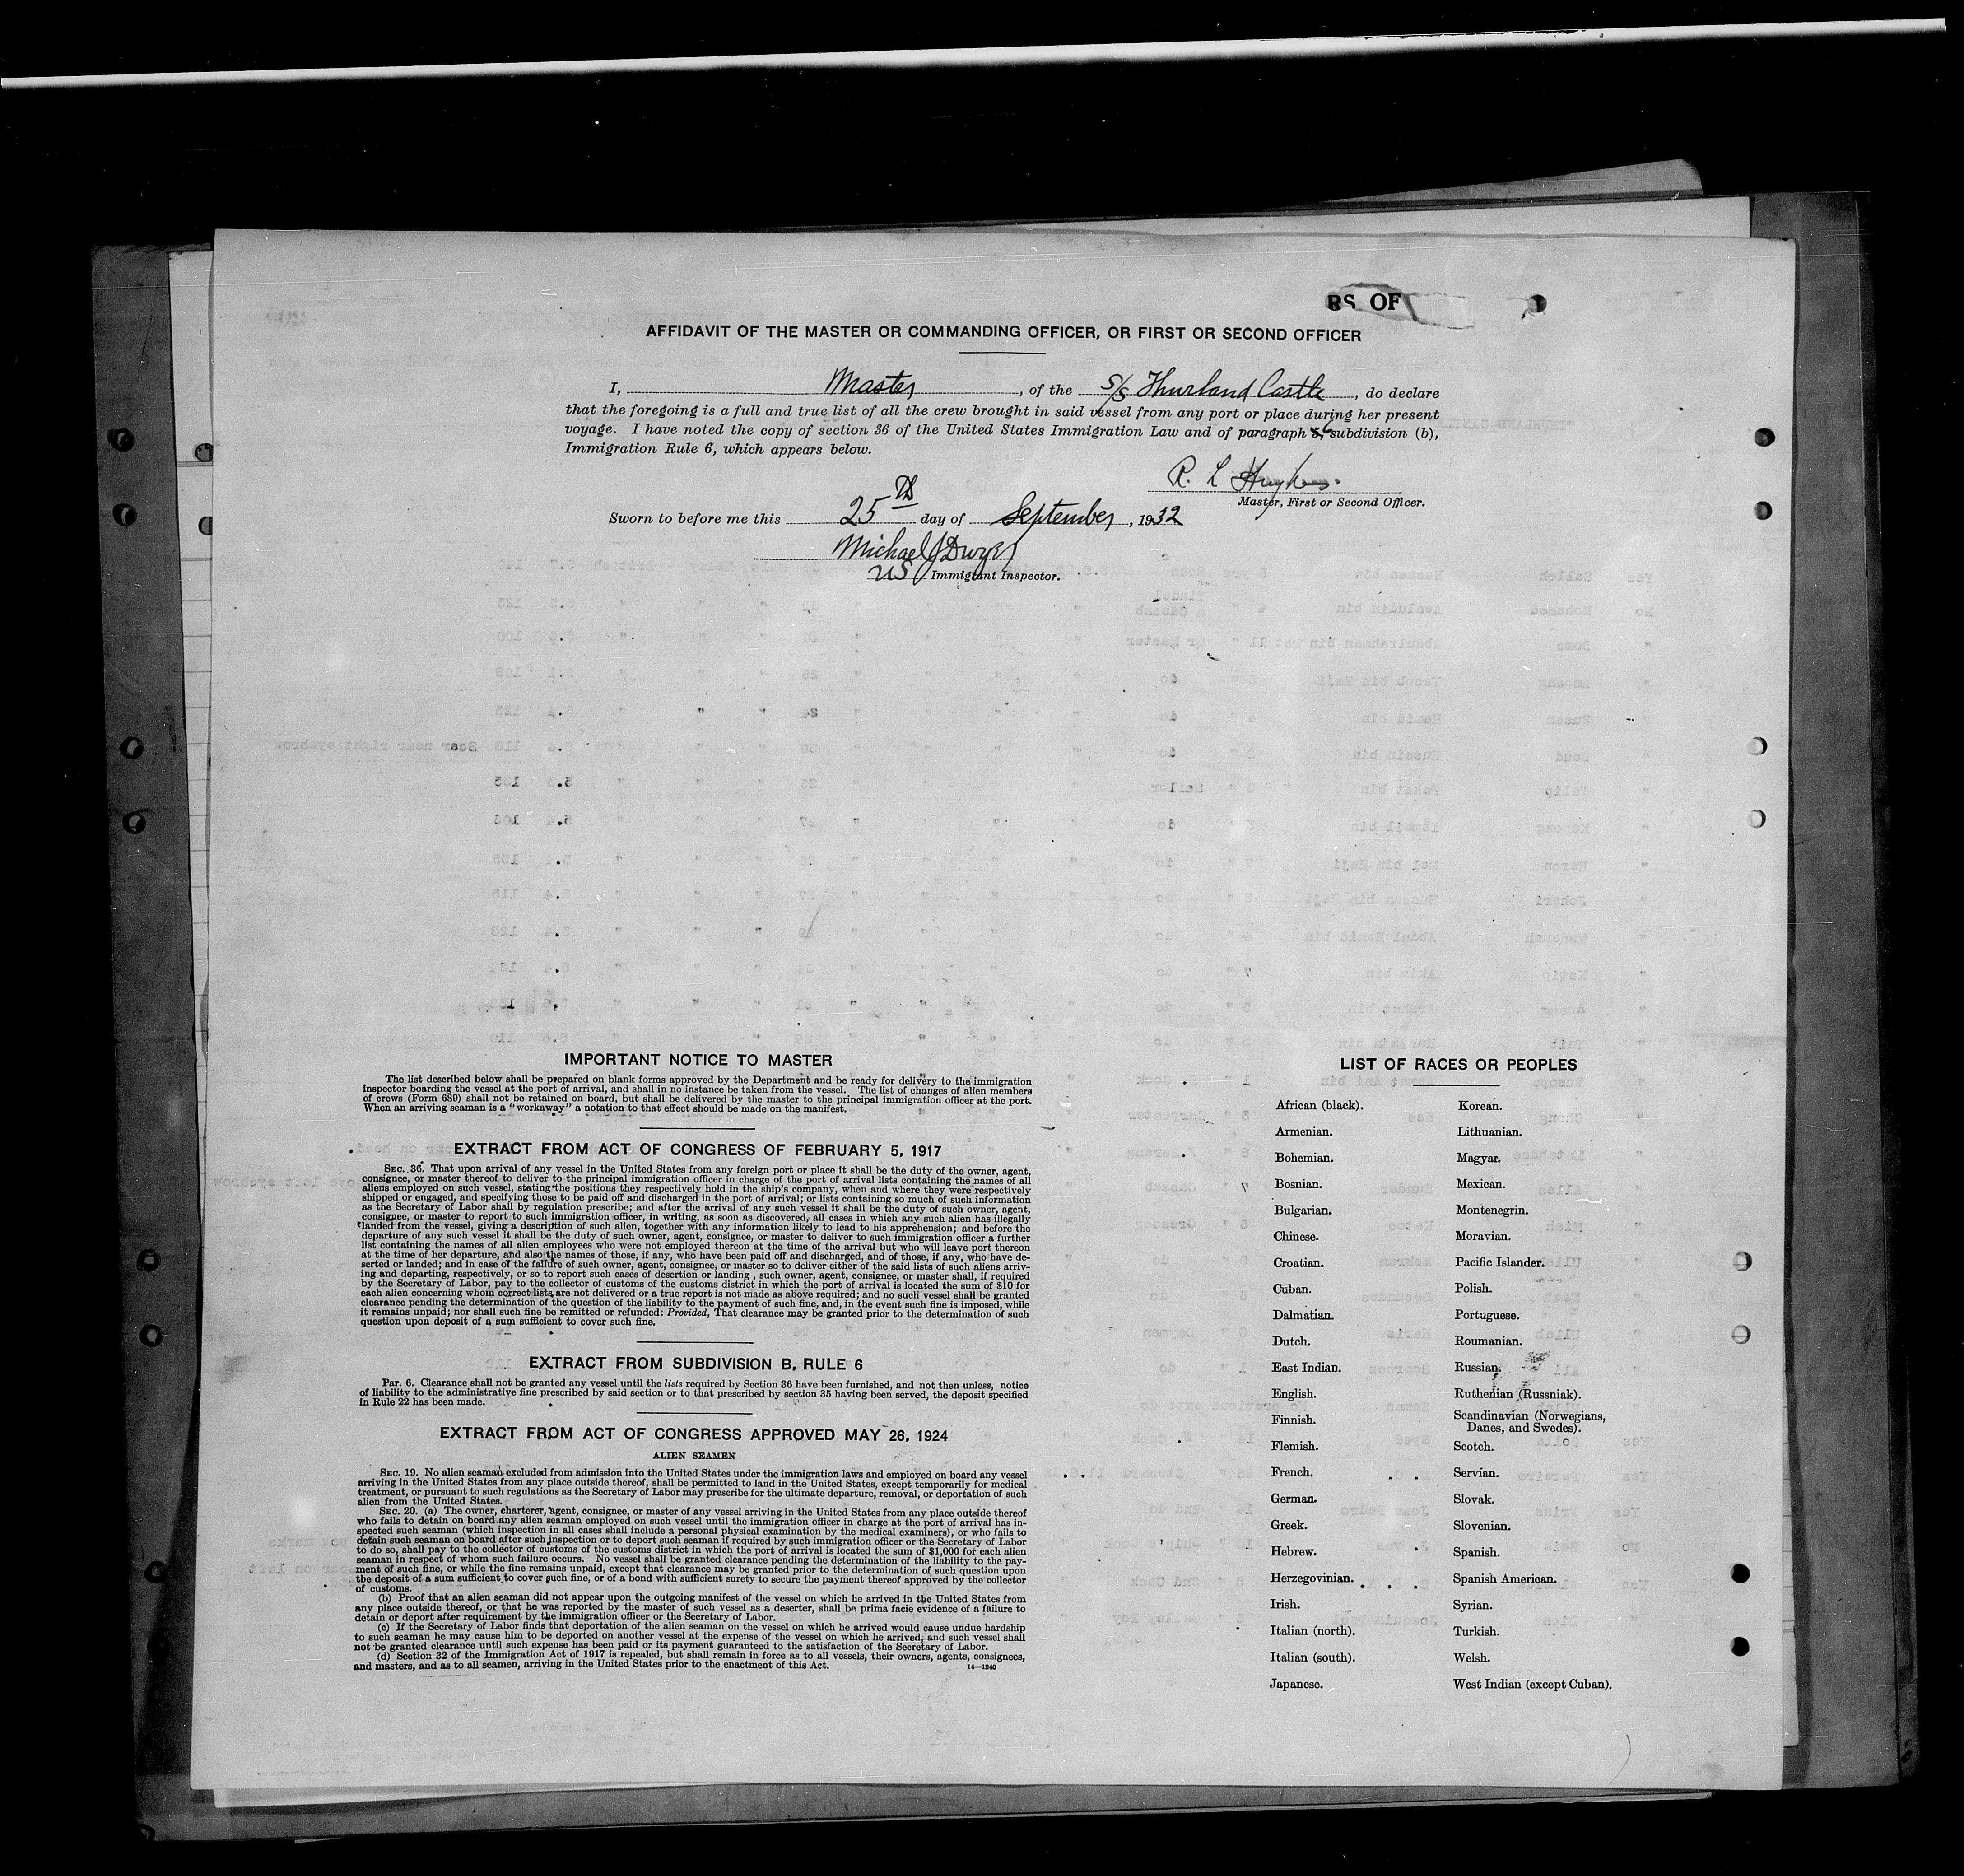 RS OF
AFFIDAVIT OF THE MASTER OR COMMANDING OFFICER, OR FIRST OR SECOND OFFICER
I, Master, of the S/S Thurland Castle, do declare
that the foregoing is a full and true list of all the crew brought in said vessel from any port or place during her present
voyage. I have noted the copy of section 36 of the United States Immigration Law and of paragraph 6, subdivision (b),
Immigration Rule 6, which appears below.
R. L Hughes.
Master, First or Second Officer.
Sworn to before me this 25th day of September, 1932
Michael J Dwyer
US Immigrant Inspector.
IMPORTANT NOTICE TO MASTER
The list described below shall be prepared on blank forms approved by the Department and be ready for delivery to the immigration
inspector boarding the vessel at the port of arrival, and shall in no instance be taken from the vessel. The list of changes of alien members
of crews (Form 689) shall not be retained on board, but shall be delivered by the master to the principal immigration officer at the port.
When an arriving seaman is a "workaway" a notation to that effect should be made on the manifest.
EXTRACT FROM ACT OF CONGRESS OF FEBRUARY 5, 1917
SEC. 36. That upon arrival of any vessel in the United States from any foreign port or place it shall be the duty of the owner, agent,
consignee, or master thereof to deliver to the principal immigration officer in charge of the port of arrival lists containing the names of all
aliens employed on such vessel, stating the positions they respectively hold in the ship's company, when and where they were respectively
shipped or engaged, and specifying those to be paid off and discharged in the port of arrival; or lists containing so much of such information
as the Secretary of Labor shall by regulation prescribe; and after the arrival of any such vessel it shall be the duty of such owner, agent,
consignee, or master to report to such immigration officer, in writing, as soon as discovered, all cases in which any such alien has illegally
landed from the vessel, giving a description of such alien, together with any information likely to lead to his apprehension; and before the
departure of any such vessel it shall be the duty of such owner, agent, consignee, or master to deliver to such immigration officer a further
list containing the names of all alien employees who were not employed thereon at the time of the arrival but who will leave port thereon
at the time of her departure, and also the names of those, if any, who have been paid off and discharged, and of those, if any, who have de-
serted or landed; and in case of the failure of such owner, agent, consignee, or master so to deliver either of the said lists of such aliens arriv-
ing and departing, respectively, or so to report such cases of desertion or landing, such owner, agent, consignee, or master shall, if required
by the Secretary of Labor, pay to the collector of customs of the customs district in which the port of arrival is located the sum of $10 for
each alien concerning whom correct lists are not delivered or a true report is not made as above required; and no such vessel shall be granted
clearance pending the determination of the question of the liability to the payment of such fine, and, in the event such fine is imposed, while
it remains unpaid; nor shall such fine be remitted or refunded: Provided, That clearance may be granted prior to the determination of such
question upon deposit of a sum sufficient to cover such fine.
EXTRACT FROM SUBDIVISION B, RULE 6
Par. 6. Clearance shall not be granted any vessel until the lists required by Section 36 have been furnished, and not then unless, notice
of liability to the administrative fine prescribed by said section or to that prescribed by section 35 having been served, the deposit specified
in Rule 22 has been made.
EXTRACT FROM ACT OF CONGRESS APPROVED MAY 26, 1924
ALIEN SEAMEN
SEC. 19. No alien seaman excluded from admission into the United States under the immigration laws and employed on board any vessel
arriving in the United States from any place outside thereof, shall be permitted to land in the United States, except temporarily for medical
treatment, or pursuant to such regulations as the Secretary of Labor may prescribe for the ultimate departure, removal, or deportation of such
alien from the United States.
SEC. 20. (a) The owner, charterer, agent, consignee, or master of any vessel arriving in the United States from any place outside thereof
who fails to detain on board any alien seaman employed on such vessel until the immigration officer in charge at the port of arrival has in-
spected such seaman (which inspection in all cases shall include a personal physical examination by the medical examiners), or who fails to
detain such seaman on board after such inspection or to deport such seaman if required by such immigration officer or the Secretary of Labor
to do so, shall pay to the collector of customs of the customs district in which the port of arrival is located the sum of $1,000 for each alien
seaman in respect of whom such failure occurs. No vessel shall be granted clearance pending the determination of the liability to the pay-
ment of such fine, or while the fine remains unpaid, except that clearance may be granted prior to the determination of such question upon
the deposit of a sum sufficient to cover such fine, or of a bond with sufficient surety to secure the payment thereof approved by the collector
of customs.
(b) Proof that an alien seaman did not appear upon the outgoing manifest of the vessel on which he arrived in the United States from
any place outside thereof, or that he was reported by the master of such vessel as a deserter, shall be prima facie evidence of a failure to
detain or deport after requirement by the immigration officer or the Secretary of Labor.
(c) If the Secretary of Labor finds that deportation of the alien seaman on the vessel on which he arrived would cause undue hardship
to such seaman he may cause him to be deported on another vessel at the expense of the vessel on which he arrived, and such vessel shall
not be granted clearance until such expense has been paid or its payment guaranteed to the satisfaction of the Secretary of Labor.
(d) Section 32 of the Immigration Act of 1917 is repealed, but shall remain in force as to all vessels, their owners, agents, consignees,
and masters, and as to all seamen, arriving in the United States prior to the enactment of this Act.
14—1240
LIST OF RACES OR PEOPLES
African (black).
Armenian.
Bohemian.
Bosnian.
Bulgarian.
Chinese.
Croatian.
Cuban.
Dalmatian.
Dutch.
East Indian.
English.
Finnish.
Flemish.
French.
German.
Greek.
Hebrew.
Herzegovinian.
Irish.
Italian (north).
Italian (south).
Japanese.
Korean.
Lithuanian.
Magyar.
Mexican.
Montenegrin.
Moravian.
Pacific Islander.
Polish.
Portuguese.
Roumanian.
Russian.
Ruthenian (Russniak).
Scandinavian (Norwegians,
Danes, and Swedes).
Scotch.
Servian.
Slovak.
Slovenian.
Spanish.
Spanish American.
Syrian.
Turkish.
Welsh.
West Indian (except Cuban).